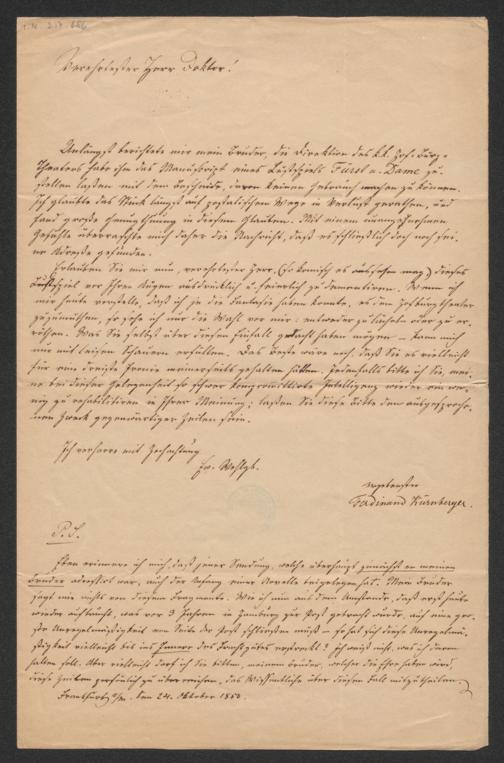 Verehrtester Herr Doktor!
Unlängst berichtete mir mein Bruder, die Direktion des k.k. Hof-Burg-
theaters habe ihm das Manuscript eines Lustspiels Fürst u. Dame zu-
stellen lassen mit dem Bescheide, davon keinen Gebrauch machen zu können.
Ich glaubte das Stück längst auf postalischem Wege in Verlust gerathen, und
fand große Genugthuung in diesem Glauben. Mit einem unangenehmen
Gefühle überraschte mich daher die Nachricht, daß es schließlich doch noch sei-
ne Adresse gefunden.
Erlauben Sie mir nun, verehrtester Herr, (so komisch es aussehen mag) dieses
Lustspiel vor Ihren Augen ausdrücklich u. feierlich zu
mir heute vorstelle, daß ich je die Fantasie haben konnte, es dem Hofburgtheater
zuzumuthen, so sehe ich nur die Wahl vor mir: entweder zu lachen oder zu er-
röthen. Was Sie selbst über diesen Einfall gedacht haben mögen – kann mich
nur mit leisem Schauern erfüllen. Das Beste wäre noch, daß Sie es vielleicht
für eine dreiste Ironie meinerseits gehalten hätten. Jedenfalls bitte ich Sie, mei-
ne bei dieser Gelegenheit so schwer kompromittirte Intelligenz wieder ein we-
nig zu rehabilitiren in Ihrer Meinung; lassen Sie diese Bitte den ausgesproche-
nen Zweck gegenwärtiger Zeilen sein.
Ich verharre mit Hochachtung
Ew. Wohlgb.
ergebenster
Ferdinand Kürnberger.
P.S.
Eben erinnere ich mich, daß jener Sendung, welche überhaupt zunächst an meinen
Bruder adressirt war, auch der Anfang einer Novelle beigelegen hat. Mein Bruder
sagt mir nichts von diesem Fragmente. Wie ich nun aus dem Umstande, daß erst heute
wieder auftaucht, was vor 3 Jahren in Hamburg zur Post gebracht wurde, auf eine gro-
ße Unregelmäßigkeit von Seite der Post schließen muß – so hat sich diese Unregelmä-
ßigkeit vielleicht bis ins Innere des Frachtgutes erstreckt? Ich weiß nicht, was ich davon
halten soll. Aber vielleicht darf ich Sie bitten, meinem Bruder, welcher die Ehre haben wird,
diese Zeilen persönlich zu überreichen, das Wissentliche über diesen Fall mitzutheilen.
Frankfurt a/M. den 24. Oktober 1853.